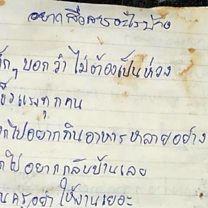 อยากสื่อสารอะไรบ้าง
บอกว่า ไม่ต้องเป็นห่วง
แข็งแรงทุกคน
อยากกินอาหารหลายอย่าง
อยากกลับบ้านเลย
ให้งานเยอะ